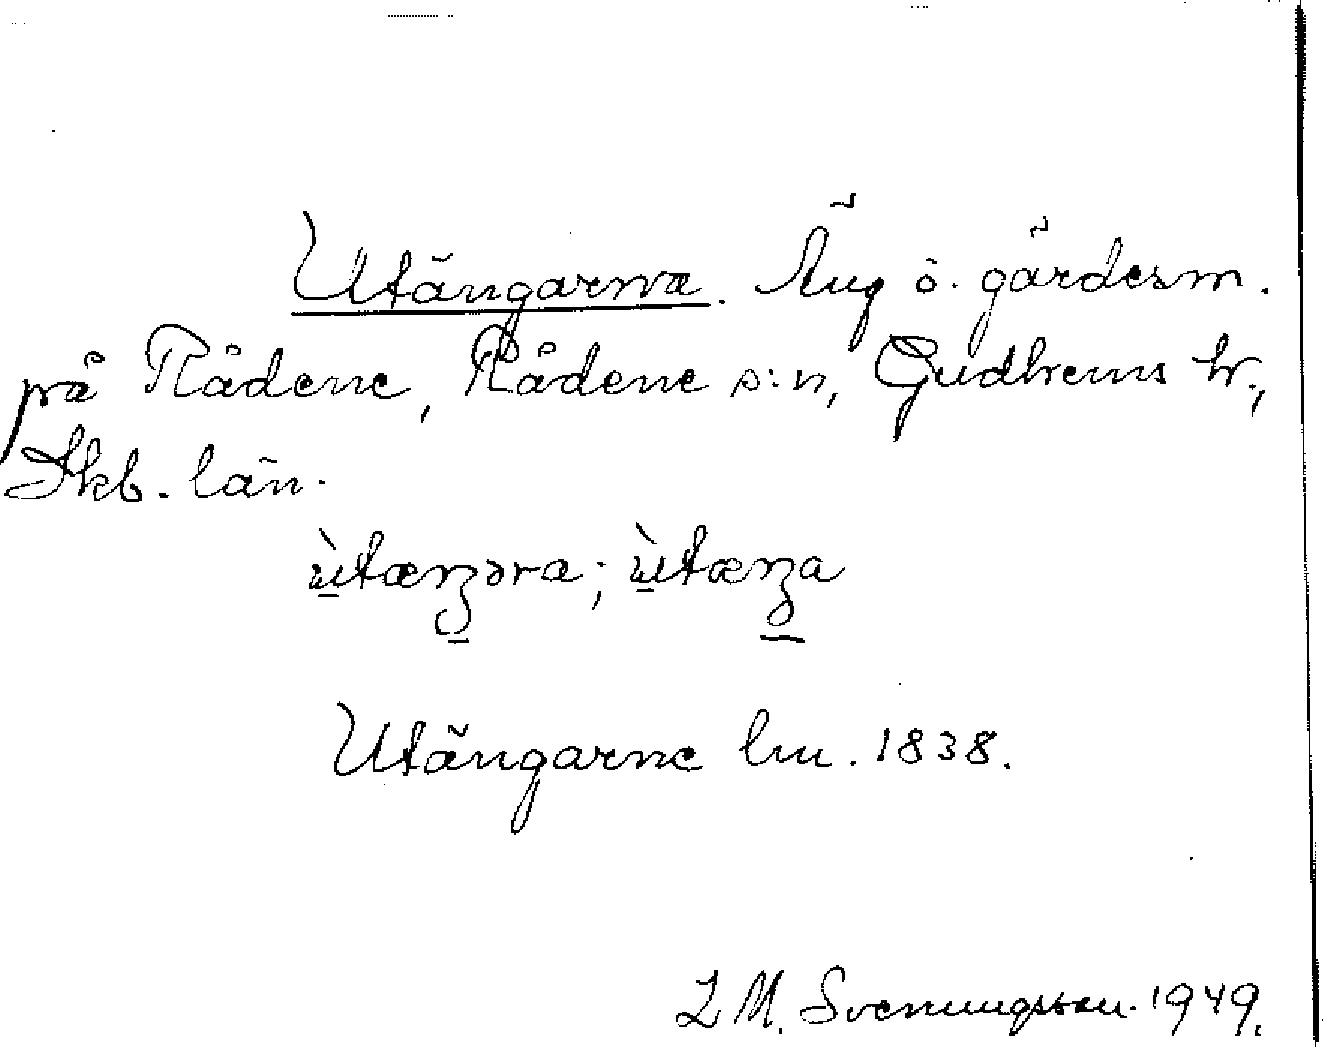 Utängarna. Äng ö. gärdesm.
på Rådene, Rådene s:n, Gudhems hr.,
Skb. län.
ùtæŋəra; ùtæŋa
Utängarne lm. 1838.
L M. Svenungsson. 1949.